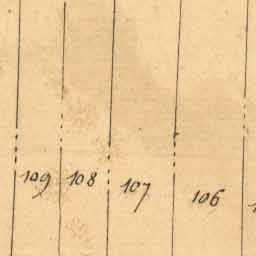 109 108 107 106